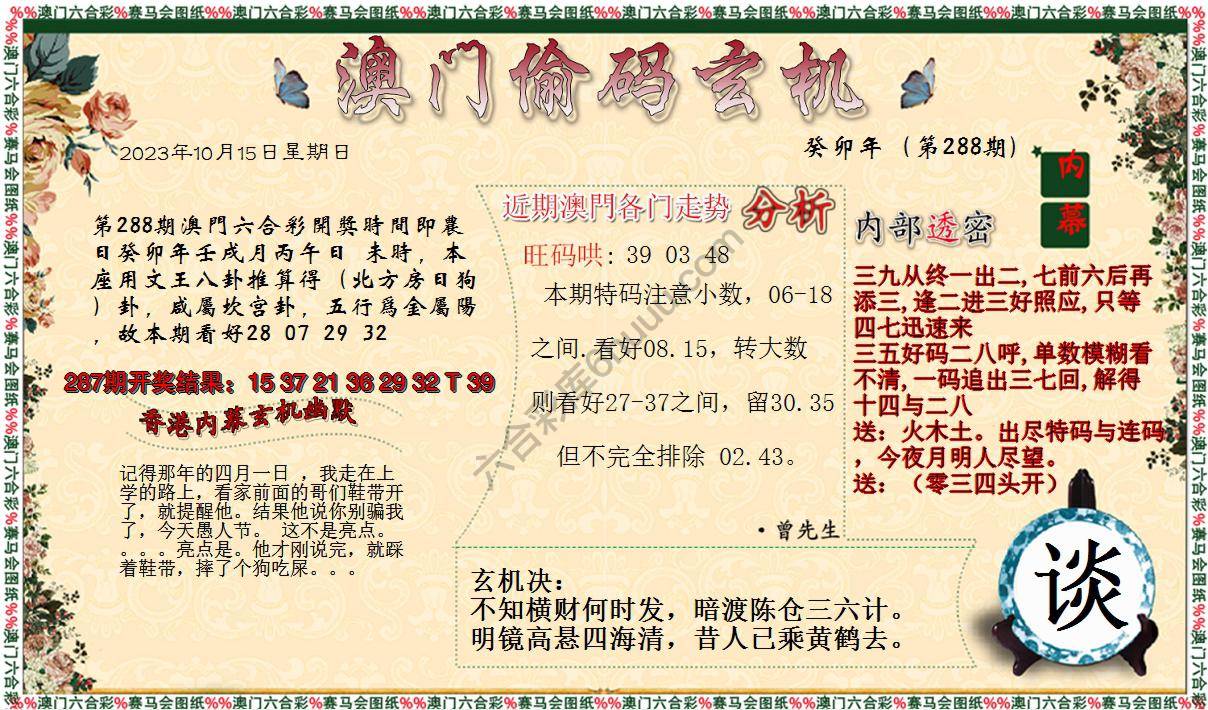 %%澳门六合彩%赛马会图纸%%澳门六合彩%赛马会图纸%%澳门六合彩%赛马会图纸%%澳门六合彩%赛马会图纸%%澳门六合彩%赛马会图纸%%澳门六合彩%赛马会图纸%%
澳门偷码玄机
2023年10月15日星期日
癸卯年（第288期）
内幕
第288期澳門六合彩開獎時間即農
日癸卯年壬戌月丙午日 未時，本
座用文王八卦推算得（北方房日狗
）卦，咸屬坎宫卦，五行爲金屬陽
，故本期看好28 07 29 32
287期开奖结果：15 37 21 36 29 32 T 39
香港内幕玄机幽默
记得那年的四月一日 ，我走在上
学的路上，看家前面的哥们鞋带开
了，就提醒他。结果他说你别骗我
了，今天愚人节。 这不是亮点。
。。。。亮点是。他才刚说完，就踩
着鞋带，摔了个狗吃屎。。。
近期澳門各门走势 分析
旺码哄: 39 03 48
本期特码注意小数，06-18
之间.看好08.15，转大数
则看好27-37之间，留30.35
但不完全排除 02.43。
·曾先生
内部透密
三九从终一出二,七前六后再
添三,逢二进三好照应,只等
四七迅速来
三五好码二八呼,单数模糊看
不清,一码追出三七回,解得
十四与二八
送：火木土。出尽特码与连码
，今夜月明人尽望。
送：（零三四头开）
玄机决：
不知横财何时发，暗渡陈仓三六计。
明镜高悬四海清，昔人已乘黄鹤去。
谈
%%澳门六合彩%赛马会图纸%%澳门六合彩%赛马会图纸%%澳门六合彩%赛马会图纸%%澳门六合彩%赛马会图纸%%澳门六合彩%赛马会图纸%%澳门六合彩%赛马会图纸%%